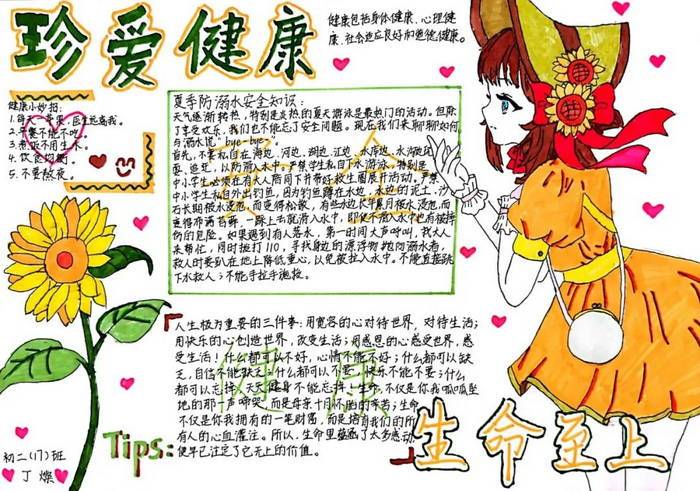 珍爱健康
健康包括身体健康、心理健
康、社会适应良好和道德健康。
健康小妙招：
1. 每天一苹果，医生远离我。
2. 早餐不能不吃
3. 煮饭不用生水。
4. 饮食均衡
5. 不要熬夜。
夏季防溺水安全知识：
天气逐渐转热，特别是炎热的夏天游泳是最热门的活动。但除
了享受欢乐，我们也不能忘了安全问题。现在我们来聊聊如何
与溺水说"bye-bye"
首先，不要私自在海边、河边、湖边、江边、水库边、水沟
边、追逐，以防滑入水中。严禁学生私自下水游泳。特别是
中小学生必须在有大人陪同下并带好救生圈展开活动。严禁
中小学生私自外出钓鱼，因为钓鱼蹲在水边，水边的泥土、沙
石长期被水浸泡，而变得松散，有些水边长年累月被水浸泡，而
重得布满苔藓，一踩上去就滑入水中，即使不滑入水中也有被摔
伤的危险。如果遇到有人落水，第一时间大声呼叫，找大人
来帮忙，同时拨打110，寻找身边的漂浮物抛向溺水者，
救人时要趴在地上降低重心，以免被拉入水中。不能直接跳
下水救人；不能手拉手施救。
人生极为重要的三件事：用宽容的心对待世界，对待生活；
用快乐的心创造世界，改变生活；用感恩的心感受世界，感
受生活！什么都可以不好，心情不能不好；什么都可以缺
乏，自信不能缺乏；什么都可以不要，快乐不能不要；什么
都可以忘掉，天天健身不能忘掉！生命，不仅是你我呱呱坠
地的那一声啼哭，而是母亲十月怀胎的辛苦；生命
不仅是你我拥有的一笔财富，而是培育我们的所
有人的心血灌注。所以，生命里蕴涵了太多感动，
便早已注定了它无上的价值。
健康
Tips:
生命至上
初二(17)班
丁燦